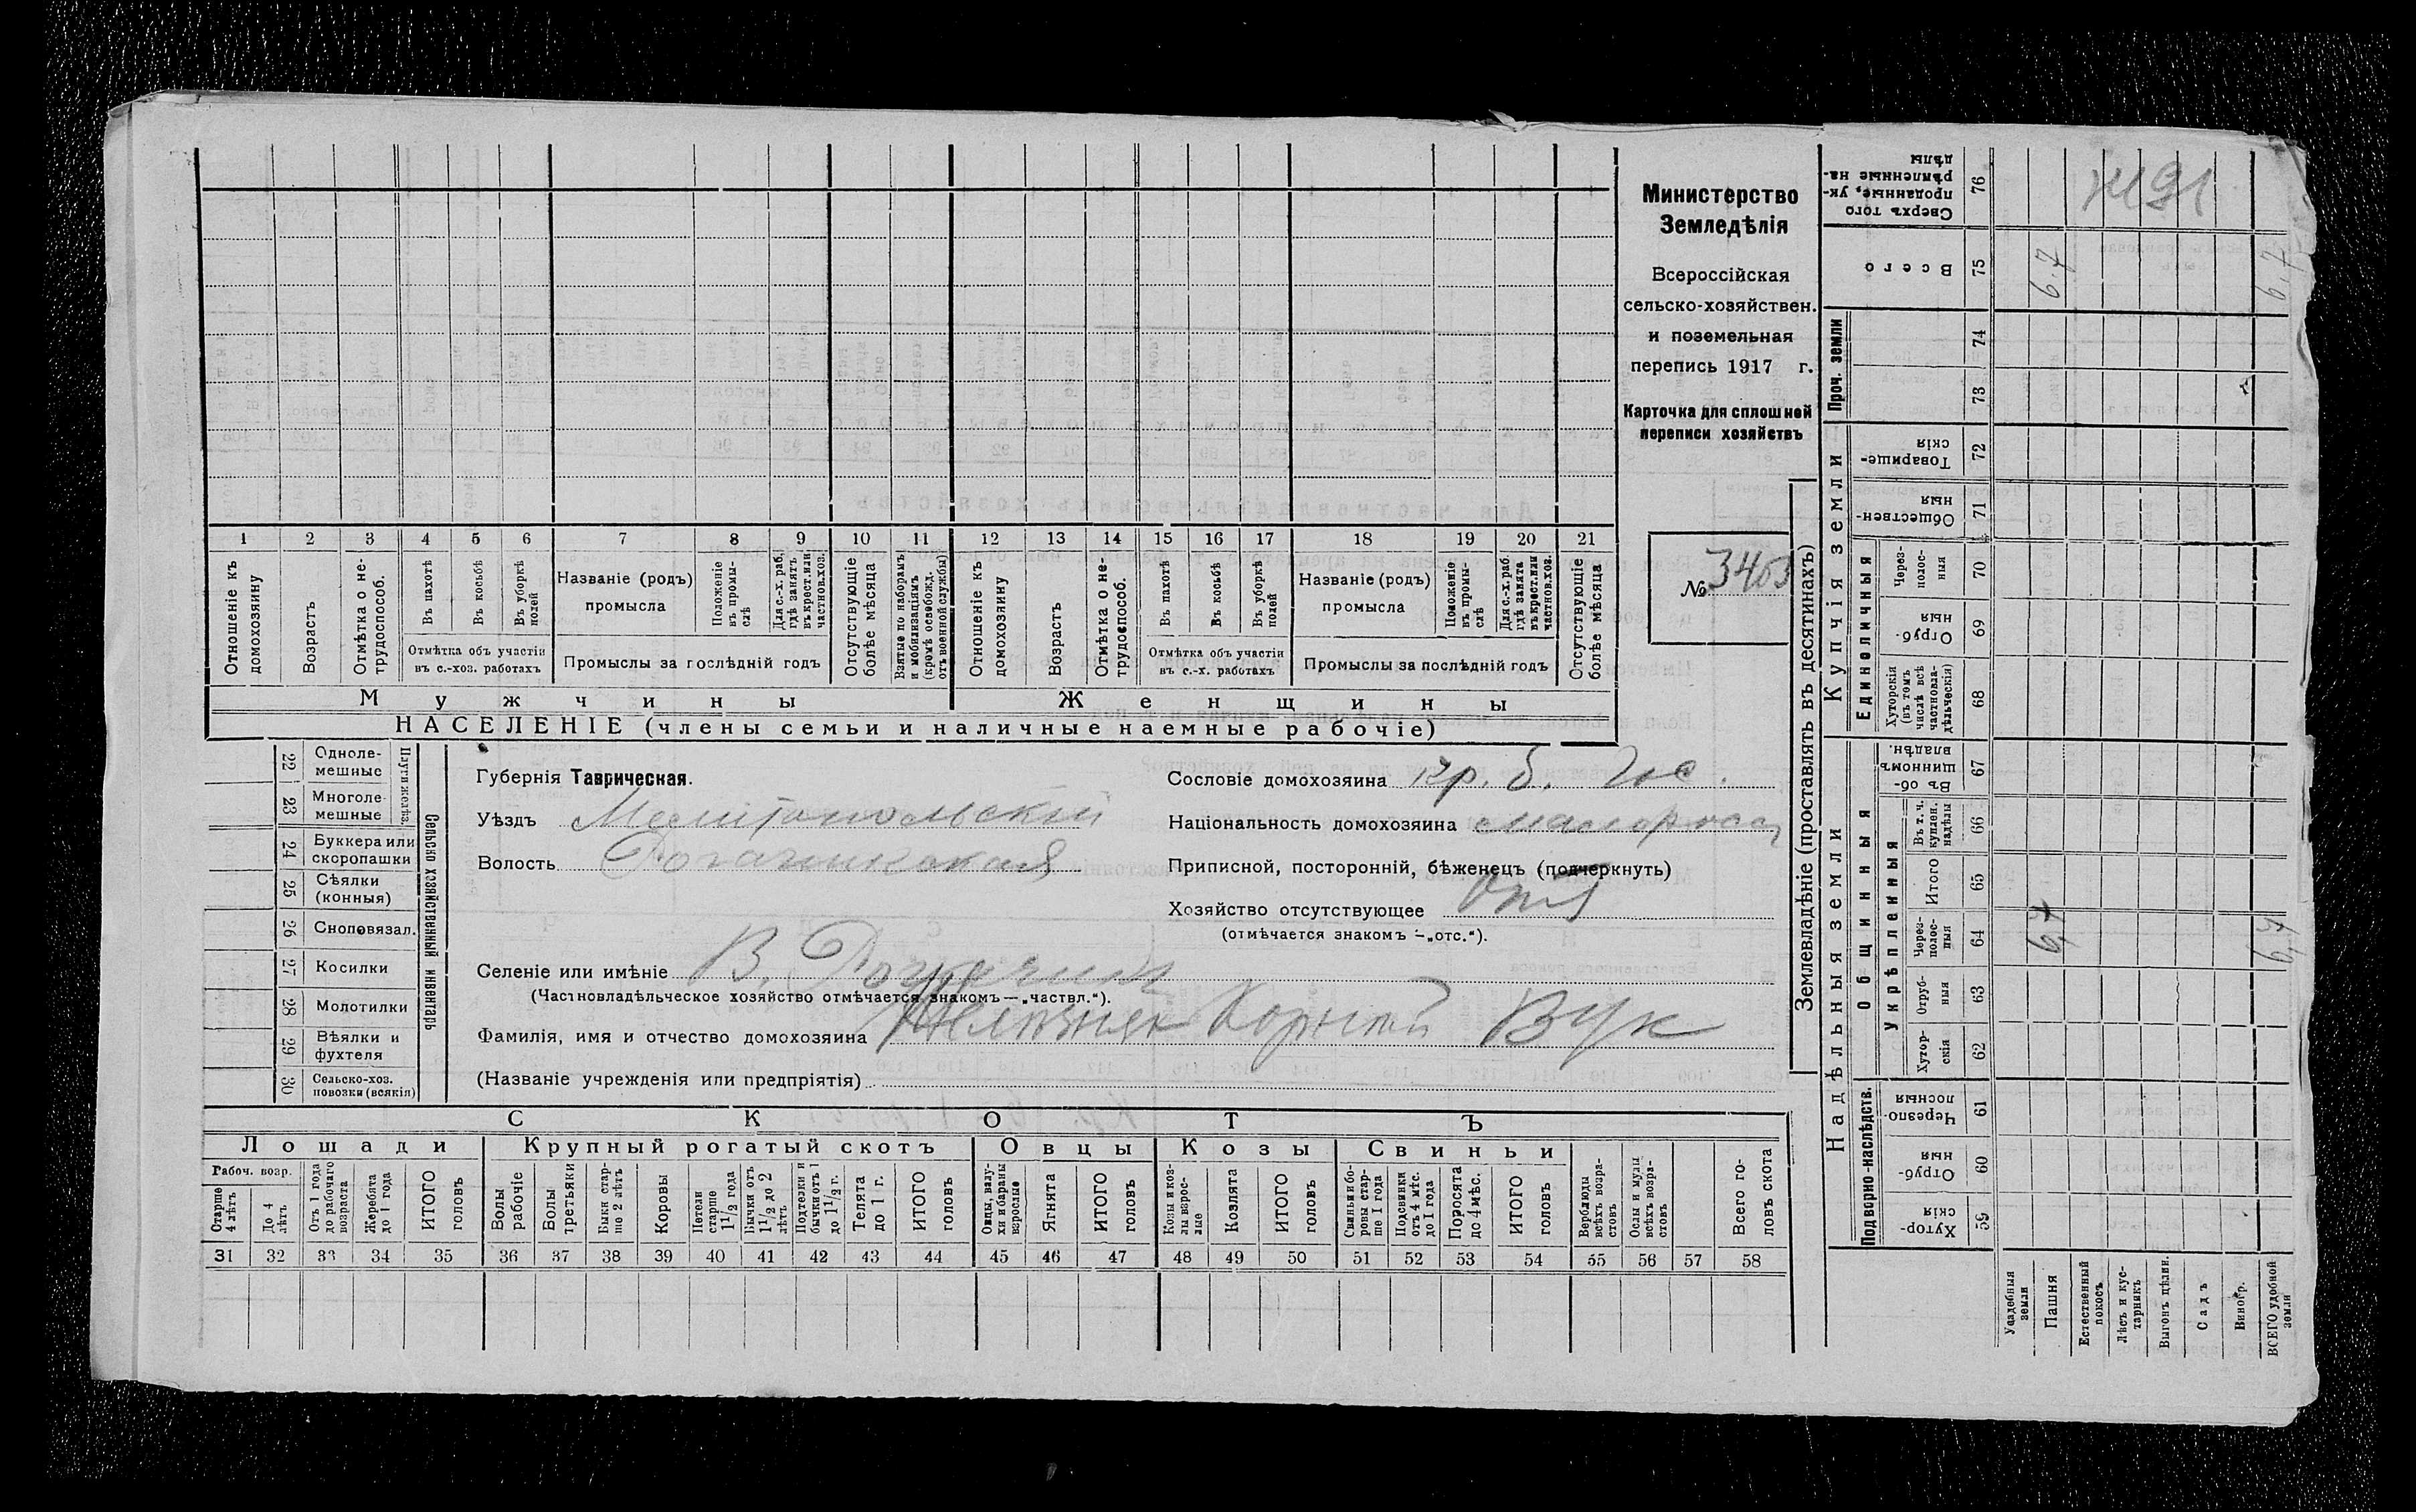 Министерство
Земледѣлія
Всероссійская
сельско-хозяйствен.
и поземельная
перепись 1917 г.
Карточка для сплошной
переписи хозяйствъ
№ 3403
1 2 3 4 5 6 7 8 9 10 11 12 13 14 15 16 17 18 19 20 21
Отношеніе къ домохозяину
Возрастъ
Отмѣтка о не-трудоспособ.
Въ пахотѣ
Въ косьбѣ
Въ уборкѣ полей
Отмѣтка объ участіи
въ с.-хоз. работахъ
Названіе (родъ)
промысла
Положеніе въ промы-слѣ
Для с.-х. раб. гдѣ занятъ въ крест. или частнов. хоз.
Промыслы за послѣдній годъ
Отсутствующіе болѣе мѣсяца
Взятые по наборамъ и мобилизаціямъ (кромѣ освобожд. отъ военной службы)
Отношеніе къ домохозяину
Возрастъ
Отмѣтка о не-трудоспособ.
Въ пахотѣ
Въ косьбѣ
Въ уборкѣ полей
Отмѣтка объ участіи
въ с.-х. работахъ
Названіе (родъ)
промысла
Положеніе въ промы-слѣ
Для с.-х. раб. гдѣ занята въ крест. или частнов. хоз.
Промыслы за послѣдній годъ
Отсутствующіе болѣе мѣсяца
Мужчины
Женщины
НАСЕЛЕНІЕ (члены семьи и наличные наемные рабочіе)
22 Одноле-мешные
23 Многоле-мешные
Плуги желѣз.
24 Буккера или скоропашки
25 Сѣялки (конныя)
26 Сноповязал.
27 Косилки
28 Молотилки
29 Вѣялки и фухтеля
30 Сельско-хоз. повозки (всякія)
Сельско хозяйственный инвентарь
Губернія Таврическая.
Уѣздъ Мелитопольскій
Волость Рогачикская
Сословіе домохозяина кр. б.
Національность домохозяина малоросс
Приписной, посторонній, бѣженецъ (подчеркнуть)
Хозяйство отсутствующее Отс
(отмѣчается знакомъ —„отс.“).
Селеніе или имѣніе В. Рогачик
(Частновладѣльческое хозяйство отмѣчается знакомъ —„частвл.“).
Фамилія, имя и отчество домохозяина Желѣзняк Корній
(Названіе учрежденія или предпріятія)
СКОТЪ
Лошади
Крупный рогатый скотъ
Овцы
Козы
Свиньи
Рабоч. возр.
Старше 4 лѣтъ
До 4 лѣтъ
Отъ 1 года до рабочаго возраста
Жеребята до 1 года
ИТОГО головъ
Волы рабочіе
Волы третьяки
Быки стар-ше 2 лѣтъ
Коровы
Нетели старше 1 1/2 года
Бычки отъ 1 1/2 до 2 лѣтъ
Подтелки и бычки отъ 1 до 1 1/2 г.
Телята до 1 г.
ИТОГО головъ
Овцы, валу-хи и бараны взрослые
Ягнята
ИТОГО головъ
Козы и коз-лы взрос-лые
Козлята
ИТОГО головъ
Свиньи и бо-ровы стар-ше 1 года
Подсвинки отъ 4 мѣс. до 1 года
Поросята до 4 мѣс.
ИТОГО головъ
Верблюды всѣхъ возра-стовъ
Ослы и мулы всѣхъ возра-стовъ
Всего го-ловъ скота
31 32 33 34 35 36 37 38 39 40 41 42 43 44 45 46 47 48 49 50 51 52 53 54 55 56 57 58
Землевладѣніе (проставлять въ десятинахъ)
Надѣльныя земли
Купчія земли
Проч. земли
Подворно-наслѣдств.
Общинныя
Укрѣпленныя
Единоличныя
Хутор-скія 59
Отруб-ныя 60
Черезпо-лосныя 61
Хутор-скія 62
Отруб-ныя 63
Через-полос-ныя 64
Итого 65
Въ т. ч. куплен. надѣлы 66
Въ об-щинномъ владѣн. 67
Хуторскія (въ томъ числѣ всѣ частновла-дѣльческія) 68
Отруб-ныя 69
Через-полос-ныя 70
Обществен-ныя 71
Товарище-скія 72
73
74
Всего 75
Сверхъ того проданные, ук-рѣпленные на-дѣлы 76
Усадебныя земли
Пашня 6,7 6.7
Естественный покосъ
Лѣсъ и кус-тарникъ
Выгонъ цѣлин.
Садъ
Виногр.
ВСЕГО удобной земли 6,7 6,7